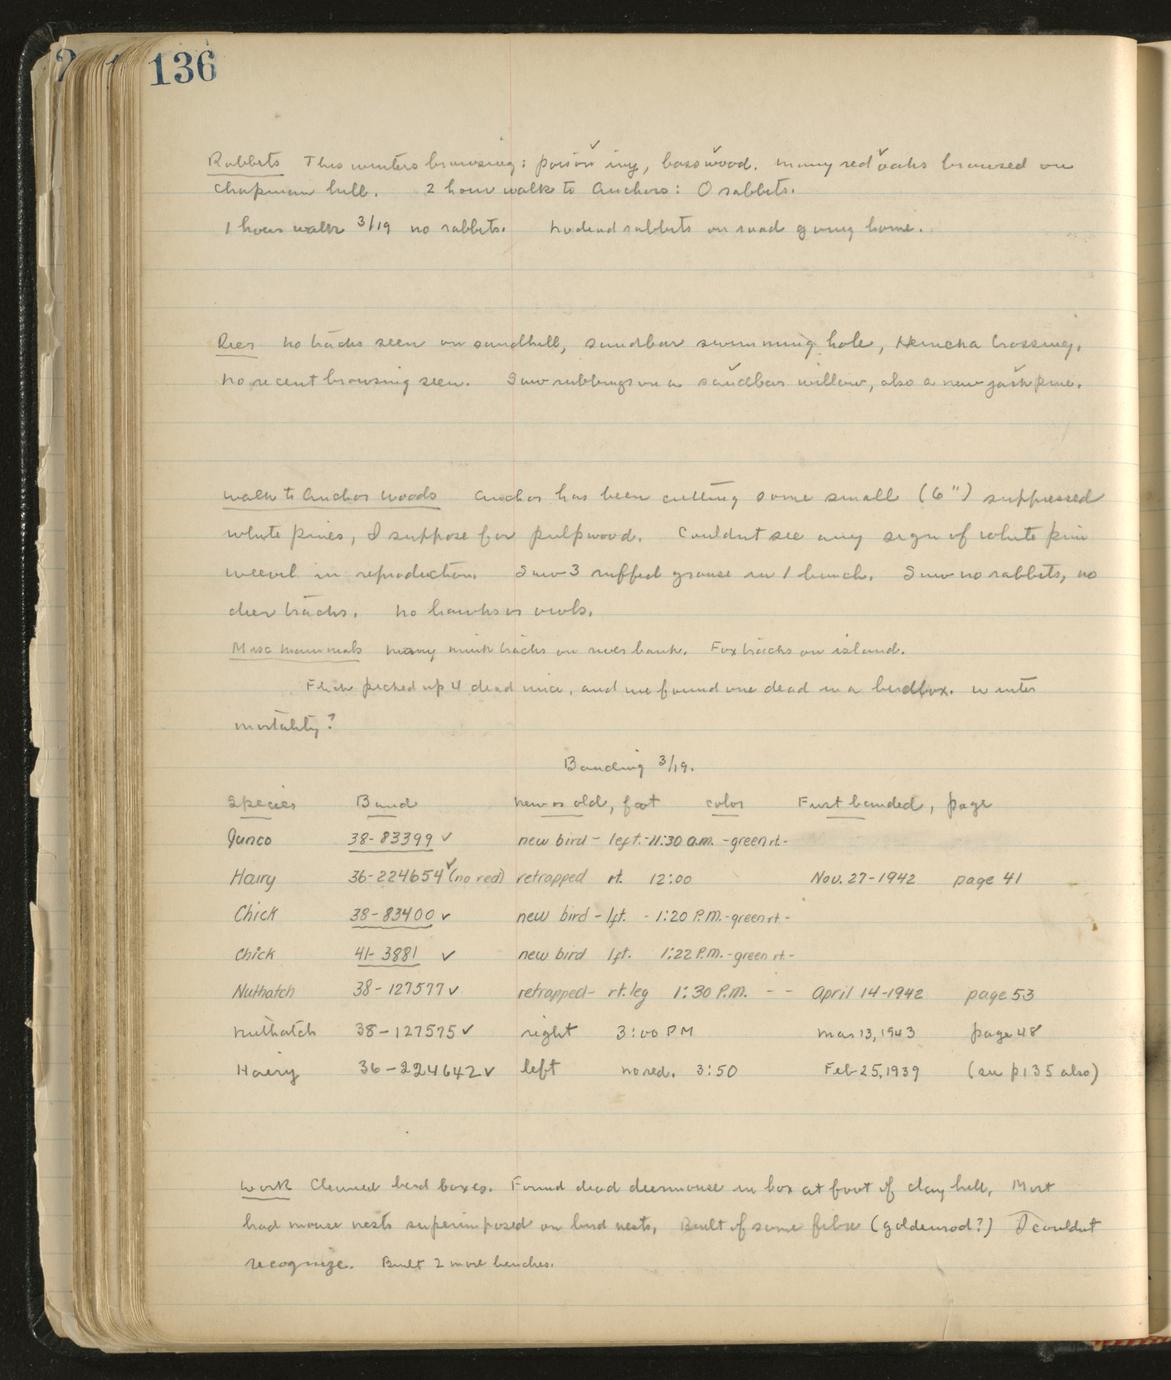 136
Rabbits This winters browsing: poison ivy, basswood. Many red oaks browsed on
Chapman hill. 2 hour walk to Anchors: 0 rabbits.
1 hour walk 3/19 no rabbits. No dead rabbits on road going home.
Deer No tracks seen on sandhill, sandbar swimming hole, crossing.
No recent browsing seen. Saw rubbings on a sandbar willow, also a new jackpine.
Walk to Anchor woods Anchor has been cutting some small (6") suppressed
white pines, I suppose for pulpwood. Couldnt see any sign of white pine
weevil in reproduction. Saw 3 ruffed grouse in 1 bunch. Saw no rabbits, no
deer tracks. No hawks or owls.
Misc mammals Many mink tracks on river bank. Fox tracks on island.
Flick picked up 4 dead mice, and we found one dead in a birdbox. Winter
mortality?
Banding 3/19.
Species Band new or old, foot color First banded, page
Junco 38-83399 ✓ new bird - left.-11:30 a.m. -green rt.-
Hairy 36-224654 ✓ (no red) retrapped rt. 12:00 Nov. 27-1942 page 41
Chick 38-83400 ✓ new bird - lft. - 1:20 P.M.-green rt-
Chick 41-3881 ✓ new bird lft. 1:22 P.M.-green rt.-
Nuthatch 38-127577 ✓ retrapped- rt. leg 1:30 P.M. - - April 14-1942 page 53
Nuthatch 38-127575 ✓ right 3:00 PM Mar 13, 1943 page 48
Hairy 36-224642 ✓ left no red. 3:50 Feb 25, 1939 (see p135 also)
Work Cleaned bird boxes. Found dead deermouse in box at foot of clay hill, Most
had mouse nests superimposed on bird nests, Built of some fibre (goldenrod?) I couldnt
recognize. Built 2 more benches.